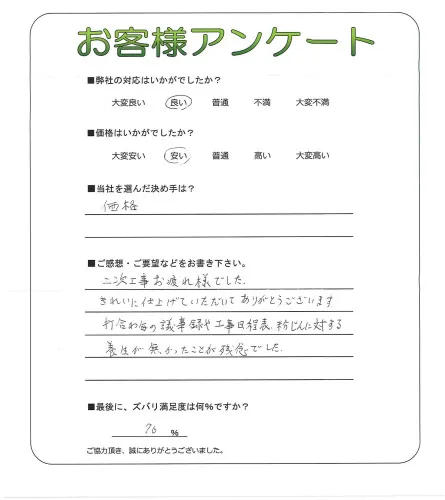 お客様アンケート
■弊社の対応はいかがでしたか?
大変良い 良い 普通 不満 大変不満
■価格はいかがでしたか?
大変安い 安い 普通 高い 大変高い
■当社を選んだ決め手は?
価格
■ご感想・ご要望などをお書き下さい。
二次工事お疲れ様でした.
きれいに仕上げていただいてありがとうございます
打合わ毎の議事録や工事日程表、粉じんに対する
養生が無かったことが残念でした.
■最後に、ズバリ満足度は何%ですか?
70 %
ご協力頂き、誠にありがとうございました。